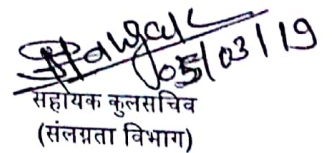 05/03/19
सहायक कुलसचिव
(संलग्नता विभाग)